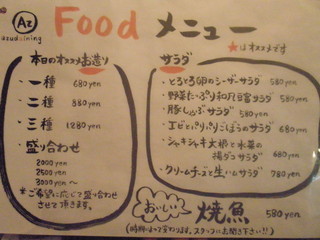 Az
azuːdining
Food メニュー
★はオススメです
本日のオススメお造り
・一種 680yen
・二種 880yen
・三種 1280yen
・盛り合わせ
2000yen
2500yen
3000yen〜
※ご希望に応じて盛り合わせ
させて頂きます。
サラダ
・とろとろ卵のシーザーサラダ 580yen
・野菜たっぷり和風豆腐サラダ 580yen
・豚しゃぶサラダ 580yen
・エビとパリパリごぼうのサラダ 680yen
・シャキシャキ大根と水菜の
揚ジャコサラダ 680yen
・クリームチーズと生ハムサラダ 780yen
おいしい 焼魚 580yen
(時期によって変わります。スタッフにお聞き下さい!!)